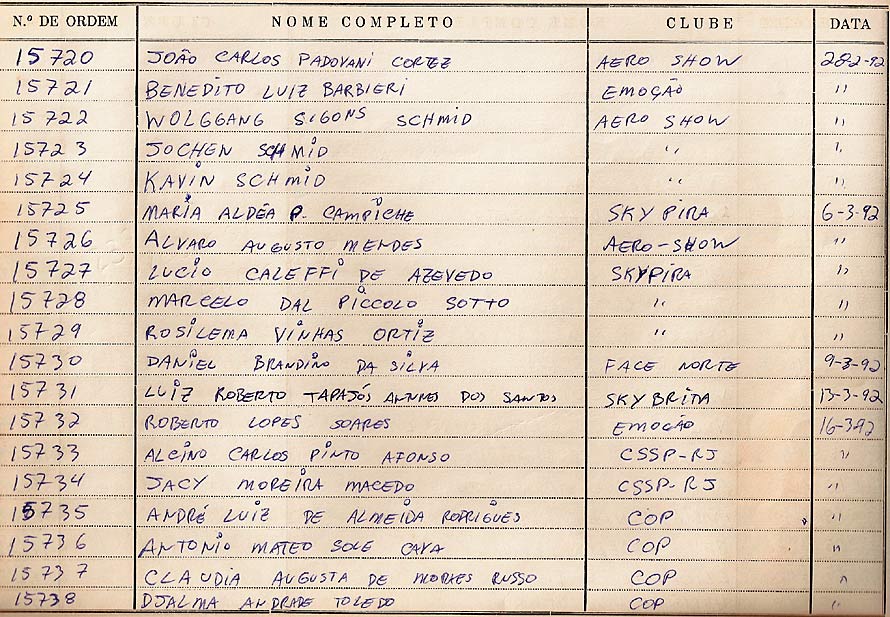 N.º DE ORDEM NOME COMPLETO CLUBE DATA
15720 JOÃO CARLOS PADOVANI CORTEZ AERO SHOW 28-2-92
15721 BENEDITO LUIZ BARBIERI EMOÇÃO "
15722 WOLGGANG SIGONS SCHMID AERO SHOW "
15723 JOCHEN SCHMID " "
15724 KAVIN SCHMID " "
15725 MARIA ALDÉA P. CAMPICHE SKYPIRA 6-3-92
15726 ALVARO AUGUSTO MENDES AERO-SHOW "
15727 LUCIO CALEFFI DE AZEVEDO SKYPIRA "
15728 MARCELO DAL PICCOLO SOTTO " "
15729 ROSILEMA VINHAS ORTIZ " "
15730 DANIEL BRANDINO DA SILVA FACE NORTE 9-3-92
15731 LUIZ ROBERTO TAPAJÓS ANTUNES DOS SANTOS SKYBRITA 13-3-92
15732 ROBERTO LOPES SOARES EMOÇÃO 16-3-92
15733 ALCINO CARLOS PINTO AFONSO CSSP-RJ "
15734 JACY MOREIRA MACEDO CSSP-RJ "
15735 ANDRÉ LUIZ DE ALMEIDA RODRIGUES COP "
15736 ANTONIO MATEO SOLE CAVA COP "
15737 CLAUDIA AUGUSTA DE MORAES RUSSO COP "
15738 DJALMA ANDRADE TOLEDO COP "